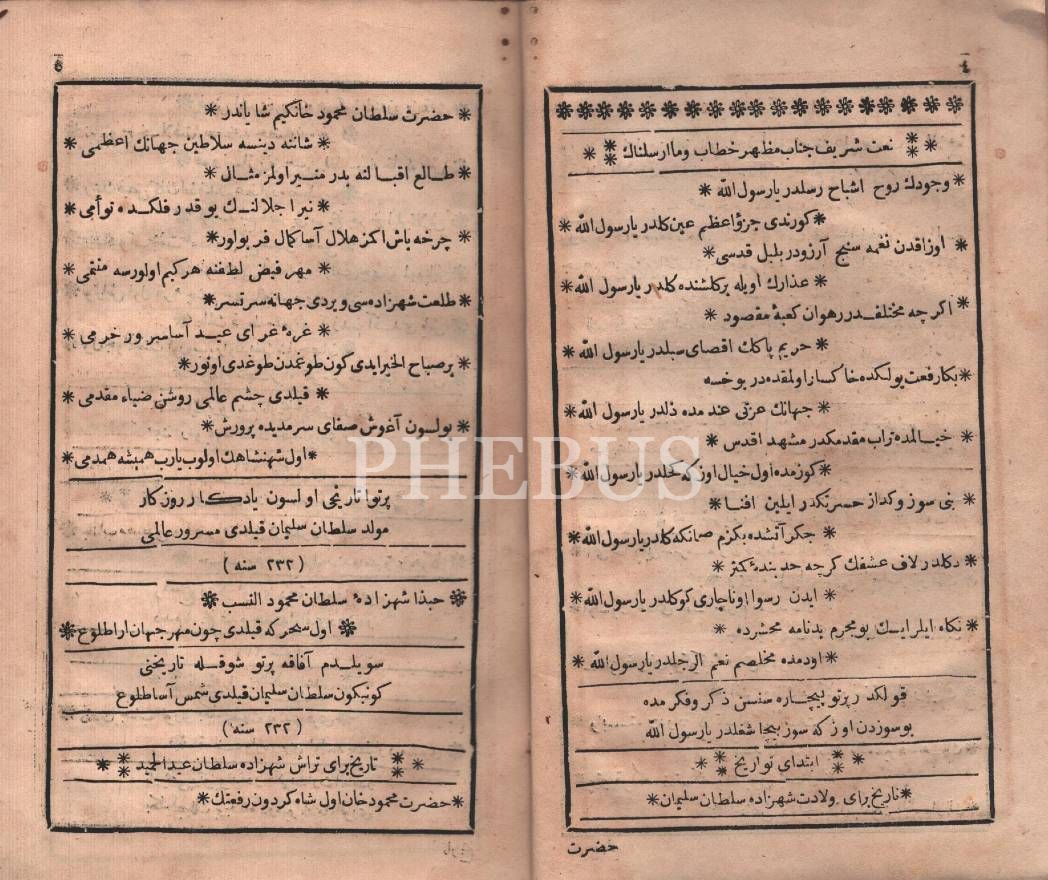 ٤
نعت شریف جناب مظهر خطاب وما ارسلناك
وجودك روح اشباح رسلدر یارسول الله
كورندی جزؤ اعظم عین كلدر یارسول الله
اوزاقدن نغمه سنج آرزودر بلبل قدسی
عذارك اویله بر كلشنده كلدر یارسول الله
اكرچه مختلفدر رهوان كعبهٔ مقصود
حریم پاكك اقصای سبلدر یارسول الله
بكا رفعت یولكده خاكسار اولمقده در یوخسه
جهانك عزتی عندمده ذلدر یارسول الله
خیالمده تراب مقدمكدر مشهد اقدس
كوزمده اول خیال اوزكه كحلدر یارسول الله
بنی سوز وكداز حسرتكدر ایلین افنا
جكر آتشده بكزم صانكه كلدر یارسول الله
دكلدر لاف عشقك كرچه حد بندهٔ كمتر
ایدن رسوا اوناچاری كوكلدر یارسول الله
نكاه ایلرایسك بو مجرم بدنامه محشرده
اودمده مخلصم نعم الرجلدر یارسول الله
قولكدر پرتو بیچاره سنسن ذكر وفكرمده
بوسوزدن اوزكه سوز بیجا شغلدر یارسول الله
ابتدای تواریخ
تاریخ برای ولادت شهزاده سلطان سلیمان
حضرت
٥
حضرت سلطان محمود خانكیم شایاندر
شاننه دینسه سلاطین جهانك اعظمی
طالع اقبالنه بدر منیر اولمز مثال
نیر اجلالنك یوقدر فلكده توأمی
چرخه باش اكز هلال آسا كمال فر بولور
مهر فیض لطفنه هركیم اولورسه منتمی
طلعت شهزاده سی ویردی جهانه سرتسر
غرهٔ غرای عید آسا سبر ور خرمی
بر صباح الخیر ایدی كون طوغمدن طوغدی اونور
قیلدی چشم عالمی روشن ضیاء مقدمی
بولسون آغوش صفای سرمدیده پرورش
اول شهنشاهك اولوب یارب همیشه همدمی
پرتوا تاریخی اولسون یادكار روزكار
مولد سلطان سلیمان قیلدی مسرور عالمی
( ٢٣٢ سنه )
حبذا شهزادهٔ سلطان محمود النسب
اول سحر كه قیلدی چون مهر جهان ارا طلوع
سویلدم آفاقه پرتو شوقله تاریخنی
كونبكون سلطان سلیمان قیلدی شمس آسا طلوع
( ٢٣٢ سنه )
تاریخ برای تراش شهزاده سلطان عبدالمجید
حضرت محمود خان اول شاه كردون رفعتك
PHEBUS